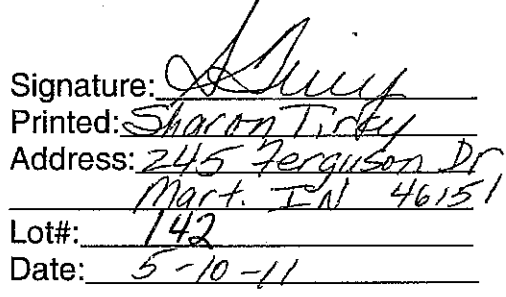 Signature:
Printed: Sharon
Address: 245 Ferguson Dr
Mart. IN 46151
Lot#: 142
Date: 5-10-11